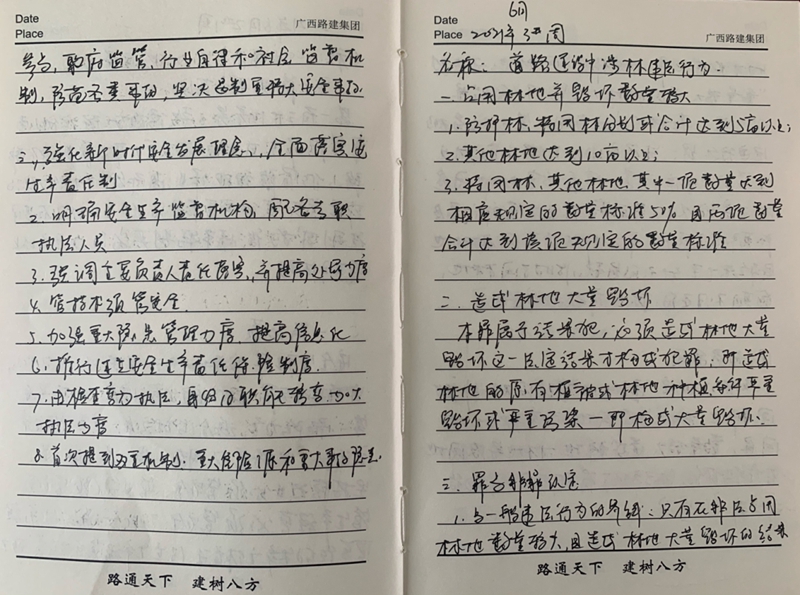 Date
Place
广西路建集团
参与、政府监管、行业自律和社会监督机
制,防范各类事故,坚决遏制重特大安全事故
三、强化新时代安全发展理念,全面落实安
全生产责任制
2.明确安全生产监督机构,配备专职
执法人员
3.强调主要负责人责任落实,并提高处罚力度
4.管技术须管安全.
5.加强重大隐患管理力度,提高信息化
6.推行建立安全生产责任保险制度.
7.由检查变为执法,身份及职能转变加大
执法力度
8.首次提到双重机制.重大危险源和重大事故隐患.
路通天下 建树八方
Date
Place 2021年6月3周
广西路建集团
名称:道路建设中涉林违法行为.
一.占用林地并毁坏数量较大
1.防护林、特用林分别或合计达到5亩以上;
2.其他林地达到10亩以上;
3.特用林、其他林地,其中一项数量达到
相应规定的数量标准50%且两项数量
合计达到该项规定的数量标准
二.造成林地大量毁坏
本罪属于结果犯,必须造成林地大量
毁坏这一法定结果才构成犯罪;即造成
林地的原有植被或林地种植条件严重
毁坏或严重污染—即构成大量毁坏.
三.罪与非罪认定
1.与一般违法行为的界线:只有在非法占用
林地数量较大,且造成林地大量毁坏的结果
路通天下 建树八方